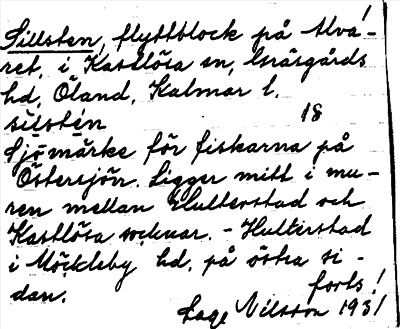 Sillsten, flyttblock på Alva-
ret, i Kastlösa sn, Gräsgårds
hd, Öland, Kalmar l.
silstén 18
Sjömärke för fiskarna på
Östersjön. Ligger mitt i mu-
ren mellan Hulterstad och
Kastlösa socknar. - Hulterstad
i Möckleby hd. på östra si-
dan. forts!
Lage Nilsson 1931